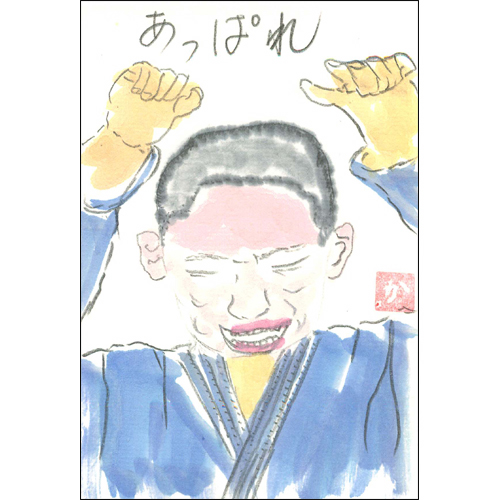 あっぱれ
か